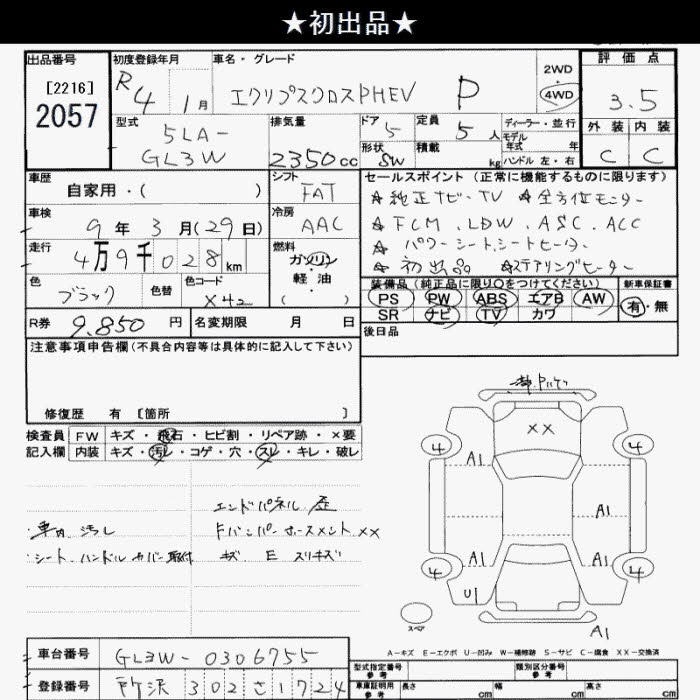 ★初出品★
出品番号
[2216]
2057
初度登録年月
R4 1月
車名・グレード
エクリプスクロスPHEV P
2WD
4WD
評価点
3.5
外装 内装
C C
型式
5LA-
GL3W
排気量
2350cc
ドア 5
定員 5人
ディーラー・並行
モデル
年式 年
形状 SW
積載 kg
ハンドル 左・右
車歴
自家用・( )
シフト
FAT
セールスポイント (正常に機能するものに限ります)
☆純正ナビ・TV ☆全方位モニター
☆FCM、LDW、ASC、ACC
☆パワーシート、シートヒーター
☆初出品 ☆ステアリングヒーター
車検
9年3月(29日)
冷房
AAC
走行
4万9千028km
燃料
ガソリン
軽・油
( )
色
ブラック
色替
色コード
X42
装備品 (純正品に限り○をつけてください)
PS PW ABS エアB AW
SR ナビ TV カワ
新車保証書
有・無
R券 9.850円
名変期限 月 日
後日品
注意事項申告欄 (不具合内容等は具体的に記入して下さい)
修復歴 有 [箇所 ]
検査員 FW キズ・飛石・ヒビ割・リペア跡・×要
記入欄 内装 キズ・汚レ・コゲ・穴・スレ・キレ・破レ
エンドパネル 歪
車内 汚レ
Fバンパーホースメント XX
シート、ハンドルカバー取付
キズ E スリキズ
XX
4 4
A1
A1
A1 A1
4 4
U1
スペア
A1
A-キズ E-エクボ U-凹み W-補修跡 S-サビ C-腐食 XX-交換済
車台番号 GL3W-0306755
登録番号 所沢 302 さ 1724
型式指定番号
参考
類別区分番号
参考
車庫証明用
参考
長さ cm 幅 cm 高さ cm